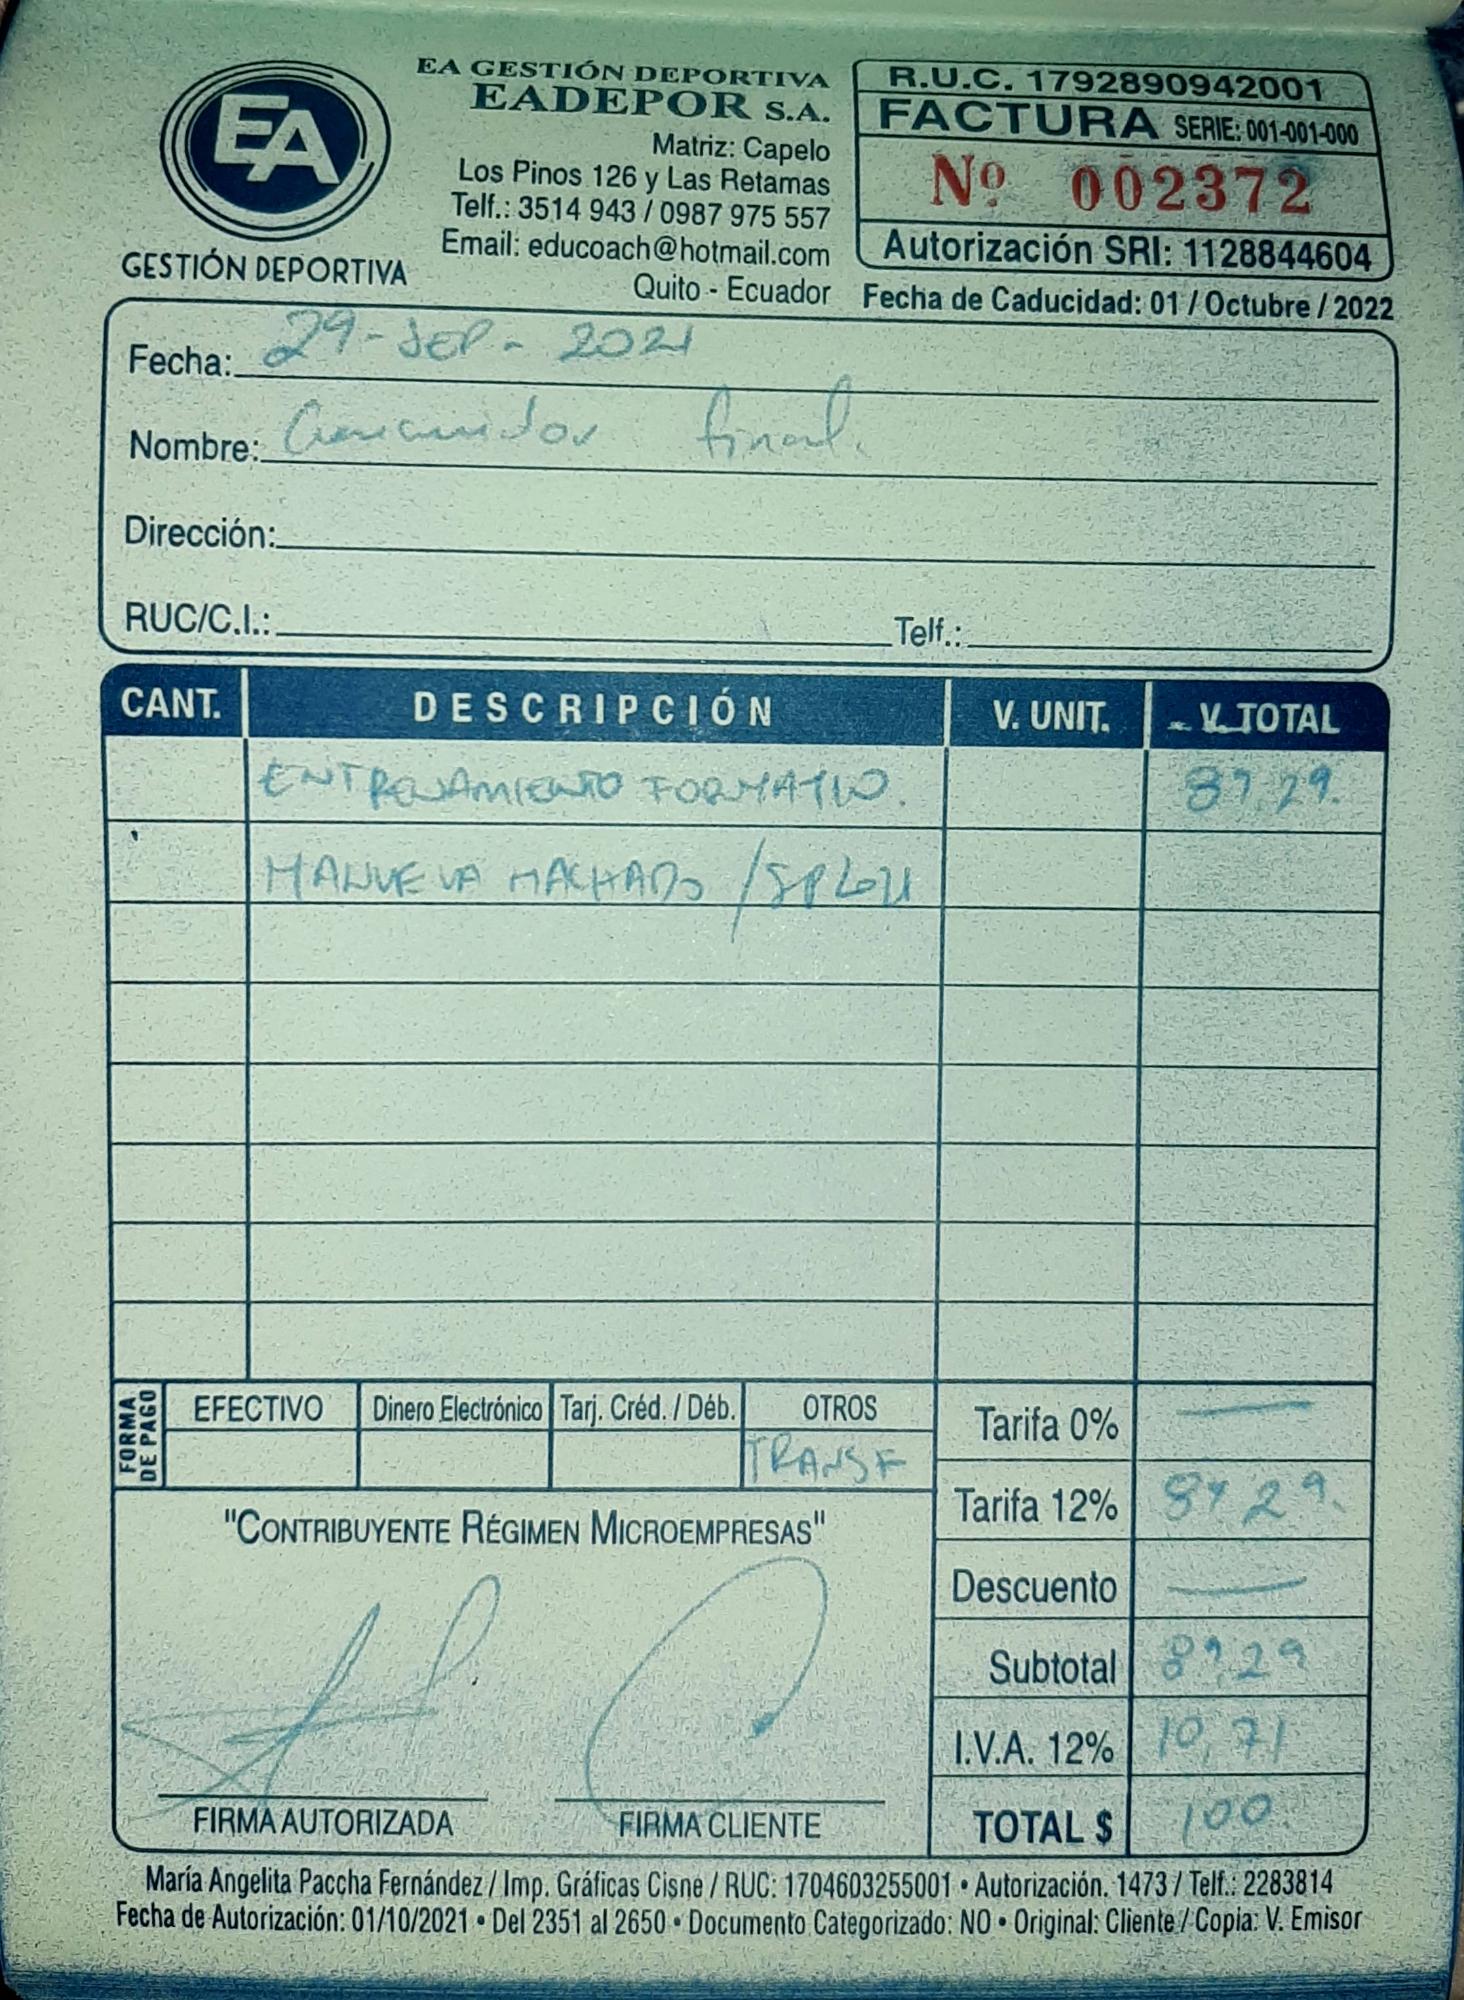 EA GESTIÓN DEPORTIVA
EADEPOR S.A.
Matriz: Capelo
Los Pinos 126 y Las Retamas
Telf.: 3514 943 / 0987 975 557
Email: educoach@hotmail.com
Quito - Ecuador
EA
GESTIÓN DEPORTIVA
R.U.C. 1792890942001
FACTURA SERIE: 001-001-000
Nº 002372
Autorización SRI: 1128844604
Fecha de Caducidad: 01 / Octubre / 2022
Fecha: 29-SEP-2021
Nombre: Consumidor final.
Dirección:
RUC/C.I.: Telf.:
CANT. DESCRIPCIÓN V. UNIT. V. TOTAL
ENTRENAMIENTO FORMATIVO. 89,29.
MACHADO
FORMA DE PAGO EFECTIVO Dinero Electrónico Tarj. Créd. / Déb. OTROS
TRANSF
Tarifa 0% —
Tarifa 12% 89,29.
Descuento —
Subtotal 89,29
I.V.A. 12% 10,71
TOTAL $ 100
"CONTRIBUYENTE RÉGIMEN MICROEMPRESAS"
FIRMA AUTORIZADA FIRMA CLIENTE
María Angelita Paccha Fernández / Imp. Gráficas Cisne / RUC: 1704603255001 • Autorización. 1473 / Telf.: 2283814
Fecha de Autorización: 01/10/2021 • Del 2351 al 2650 • Documento Categorizado: NO • Original: Cliente / Copia: V. Emisor